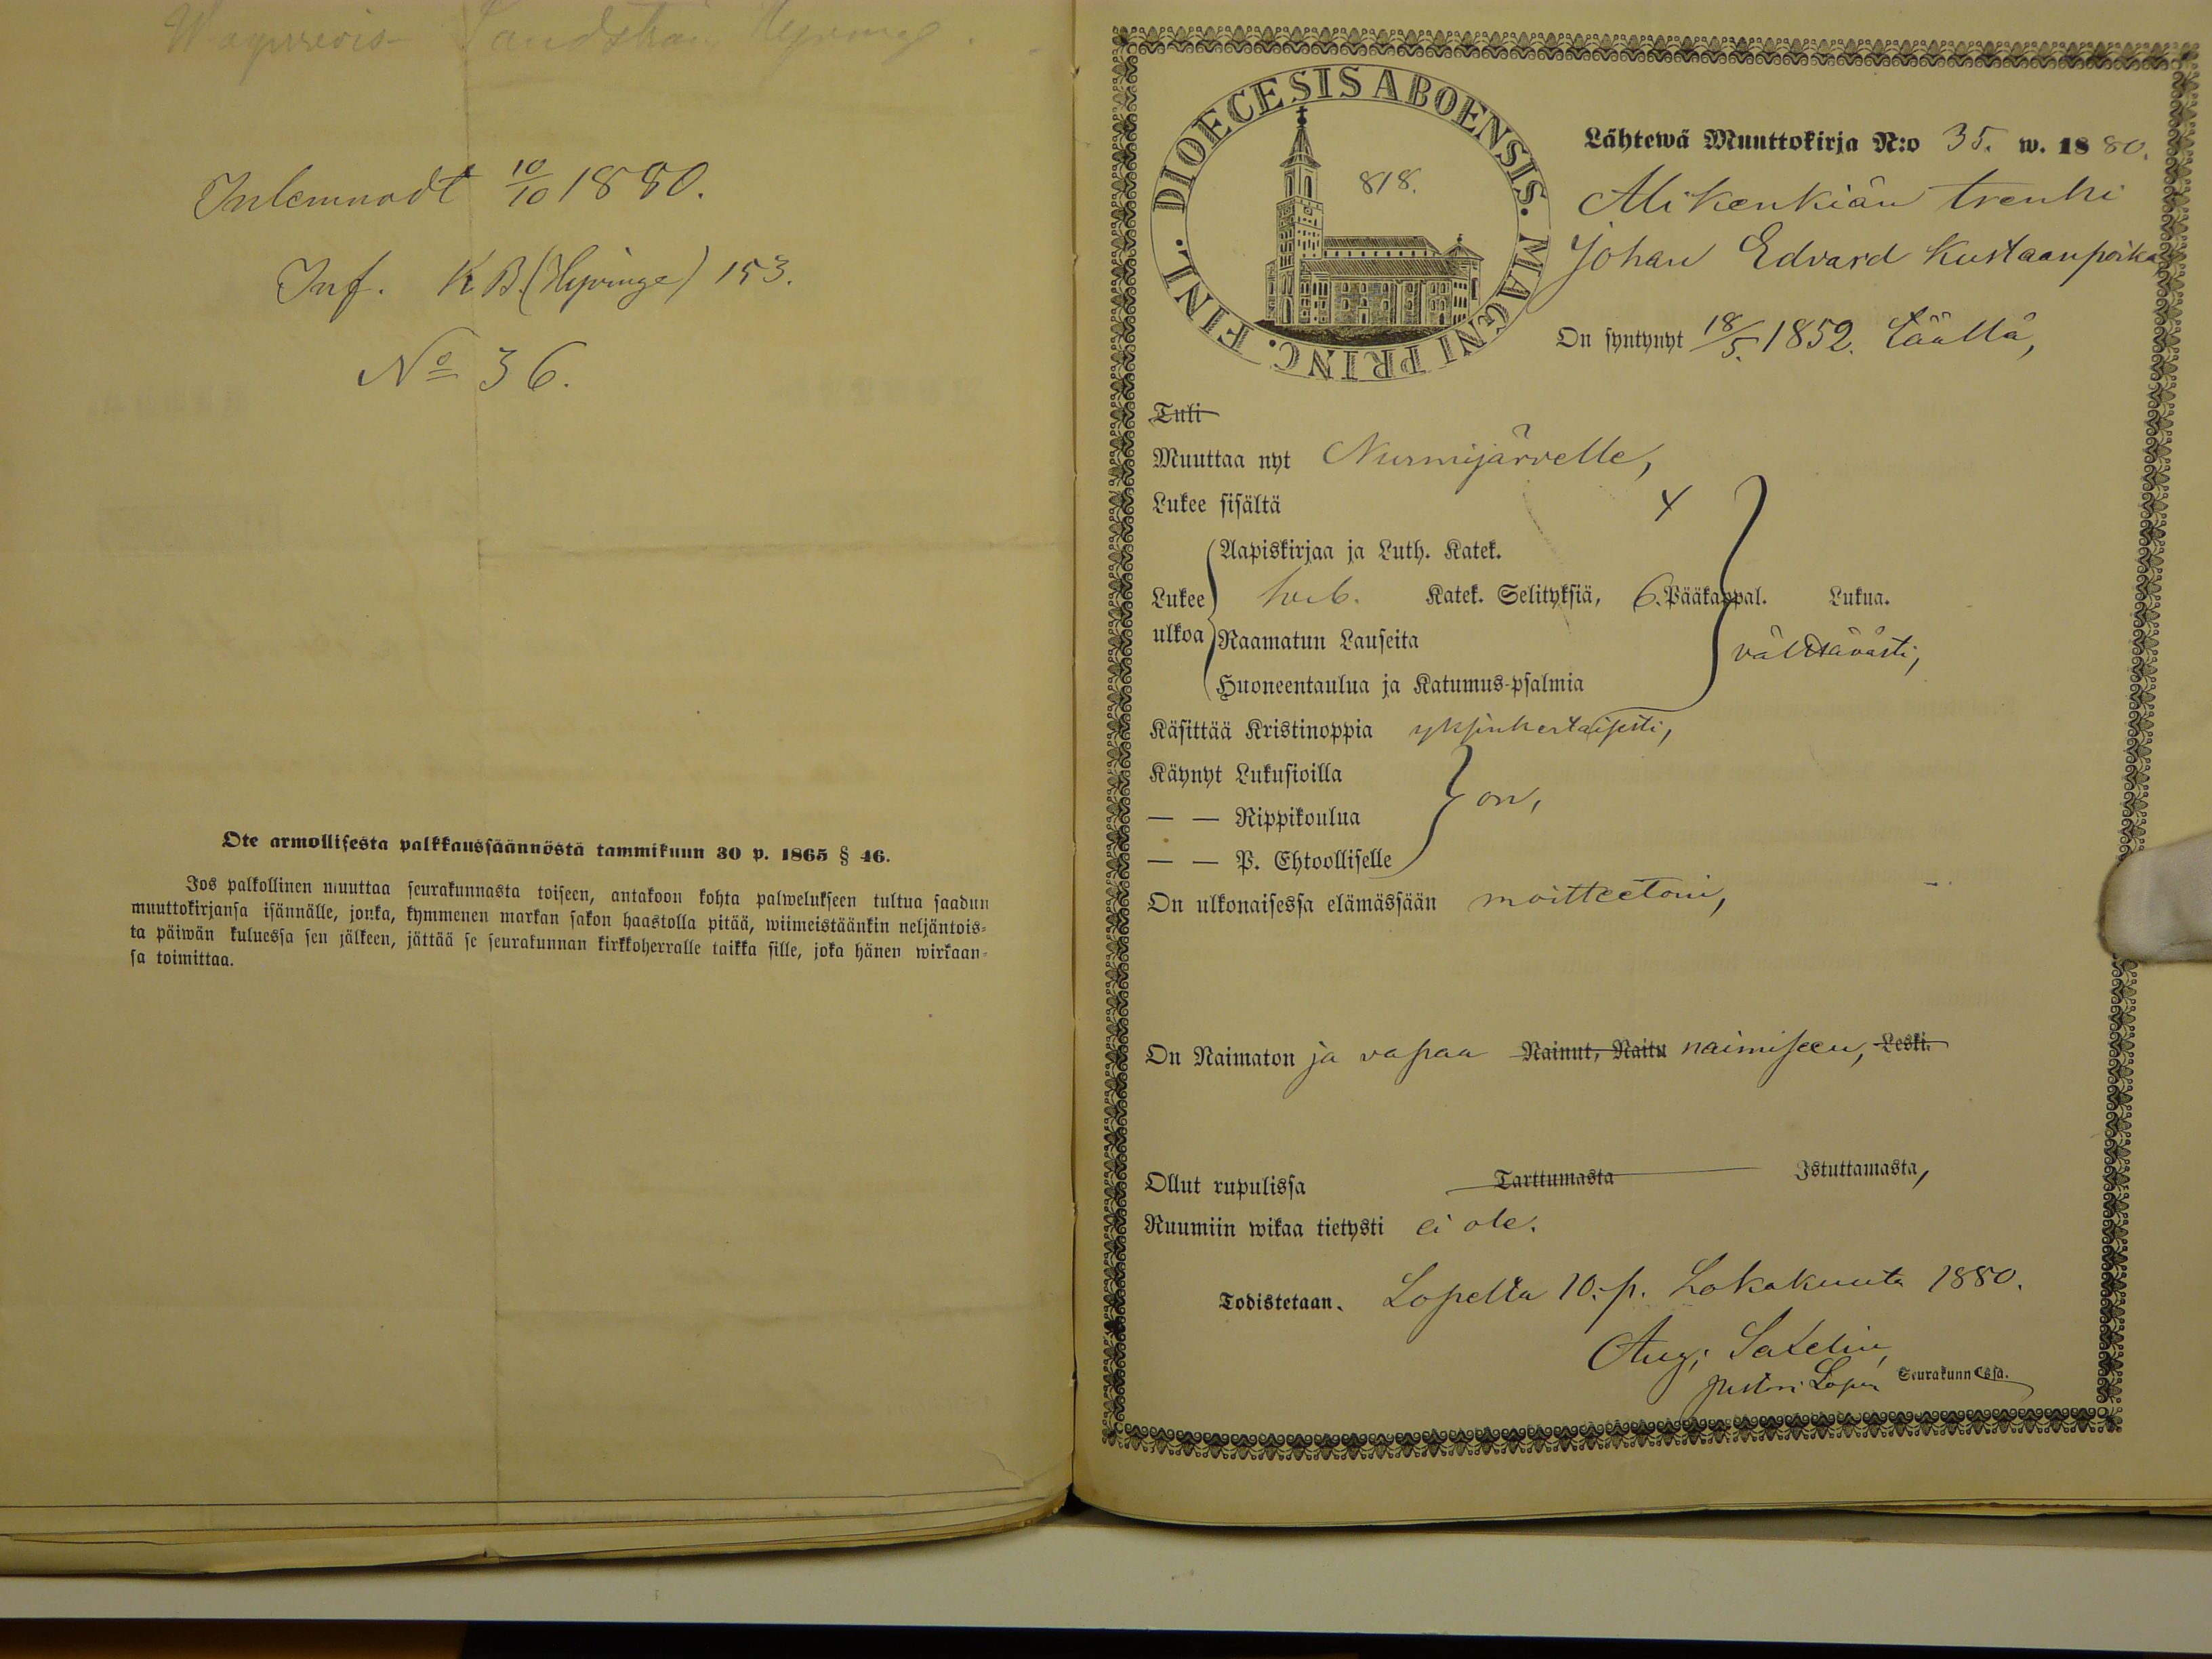 Inlemnadt 10/10 1880.
Inf. K B. (Hyvinge) 153.
No 36.
Ote armollisesta palkkaussäännöstä tammikuun 30 p. 1865 § 46.
Jos palkollinen muuttaa seurakunnasta toiseen, antakoon kohta palwelukseen tultua saadun
muuttokirjansa isännälle, jonka, kymmenen markan sakon haastolla pitää, wiimeistäänkin neljäntois-
ta päiwän kuluessa sen jälkeen, jättää se seurakunnan kirkkoherralle taikka sille, joka hänen wirkaan-
sa toimittaa.
DIOECESIS ABOENSIS. MAGNI PRINC. FINL.
818.
Lähtewä Muuttokirja N:o 35. w. 1880.
Alikenkiän trenki
Johan Edvard Kustaanpoika
On syntynyt 18/5. 1852. täällä,
Tuli
Muuttaa nyt Nurmijärvelle,
Lukee sisältä
Aapiskirjaa ja Luth. Katek.
Lukee Katek. Selityksiä, 6. Pääkappal. Lukua.
ulkoa Raamatun Lauseita välttävästi,
Huoneentaulua ja Katumus-psalmia
Käsittää Kristinoppia yksinkertaisesti,
Käynyt Lukusioilla
— — Rippikoulua on,
— — P. Ehtoolliselle
On ulkonaisessa elämässään moitteetoin,
On Naimaton ja vapaa Nainut, Naitu naimiseen, Leski.
Ollut rupulissa Tarttumasta Istuttamasta,
Ruumiin wikaa tietysti ei ole.
Todistetaan. Lopella 10. p. Lokakuuta 1880.
Aug.
Seurakunnassa.